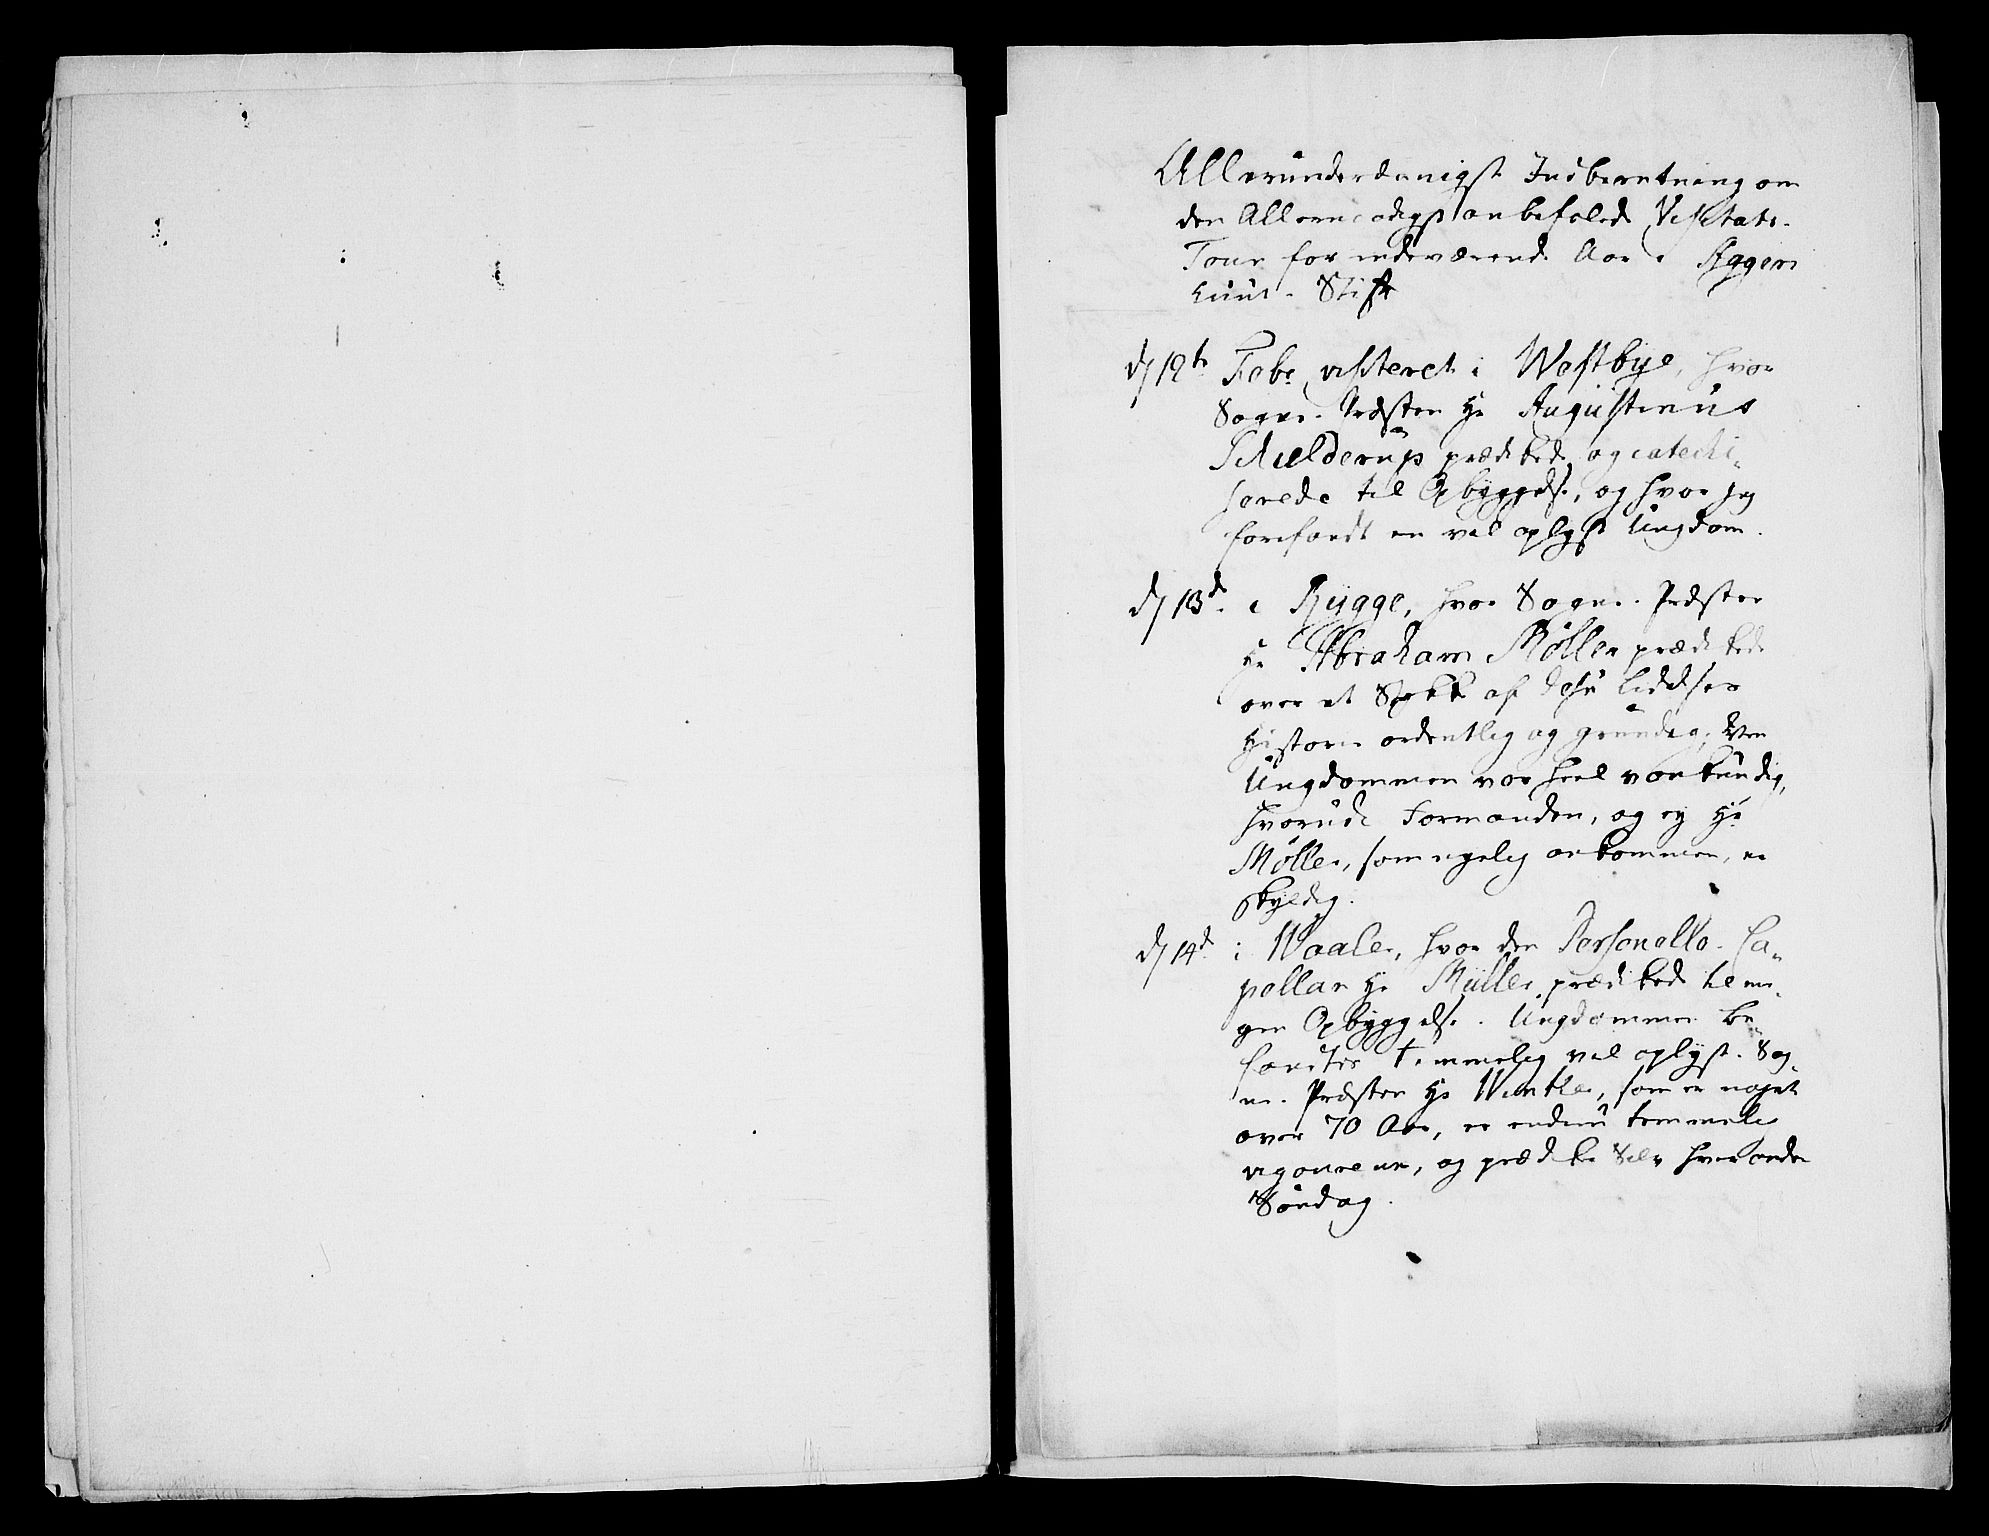 Allerunderdanigst Indberetning om
den Allernaadigst anbefalede Visitats-
Tour for indeværende Aar i Agger-
huus-Stift
d/12te Febr. visiteret i Westbye, hvor
Sogne-Præsten Hr Augustinus
Schielderup prædikede og catechi-
serede til Opbyggelse, og hvor jeg
forefandt en vel oplyst Ungdom.
d/13de i Rygge, hvor Sogne-Præsten
Hr Abraham Møller prædikede
over et Stykke af Jesu Lidelses
Historie ordentlig og grundig, Men
Ungdommen var heel vankundig,
hvorudi Formanden, og ey Hr
Møller, som nyelig ankommen, er
skyldig.
d/14de i Waaler, hvor den Personelle-Ca-
pellan Hr Müller prædikede til me-
gen Opbyggelse. Ungdommen be-
fandtes temmelig vel oplyst. Sog-
ne-Præsten Hr Winther, som er noget
over 70 Aar, er endnu temmelig
vigoureux, og prædiker Selv hver anden
Søndag.